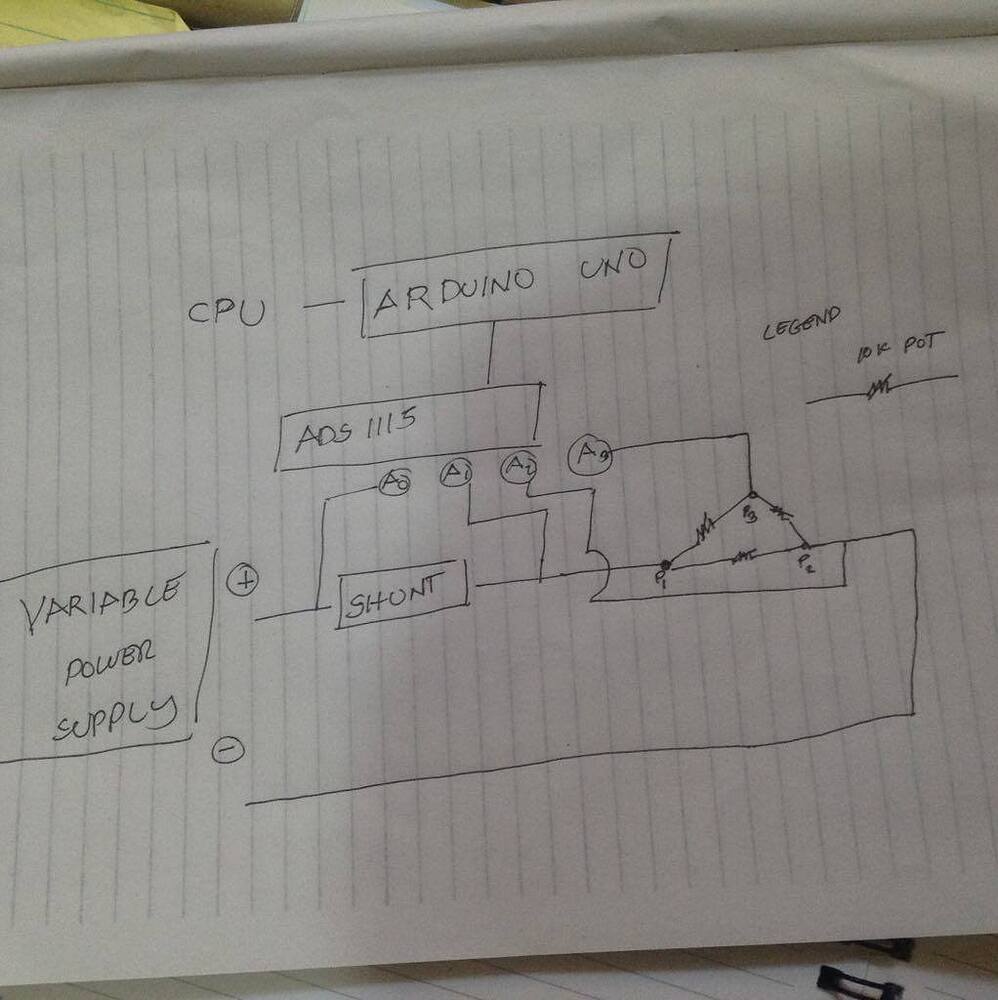 CPU — ARDUINO UNO
LEGEND
10K POT
ADS 1115
A0 A1 A2 A3
P3
P1 P2
+
SHUNT
VARIABLE
POWER
SUPPLY
-